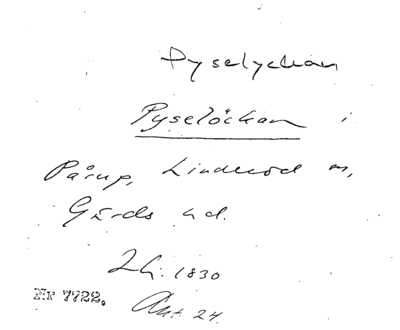 Pyselyckan
Pyselöckan i
Pårup, Linderöd sn,
Gärds hd.
Lh. 1830
Nr 7722. Akt 24.